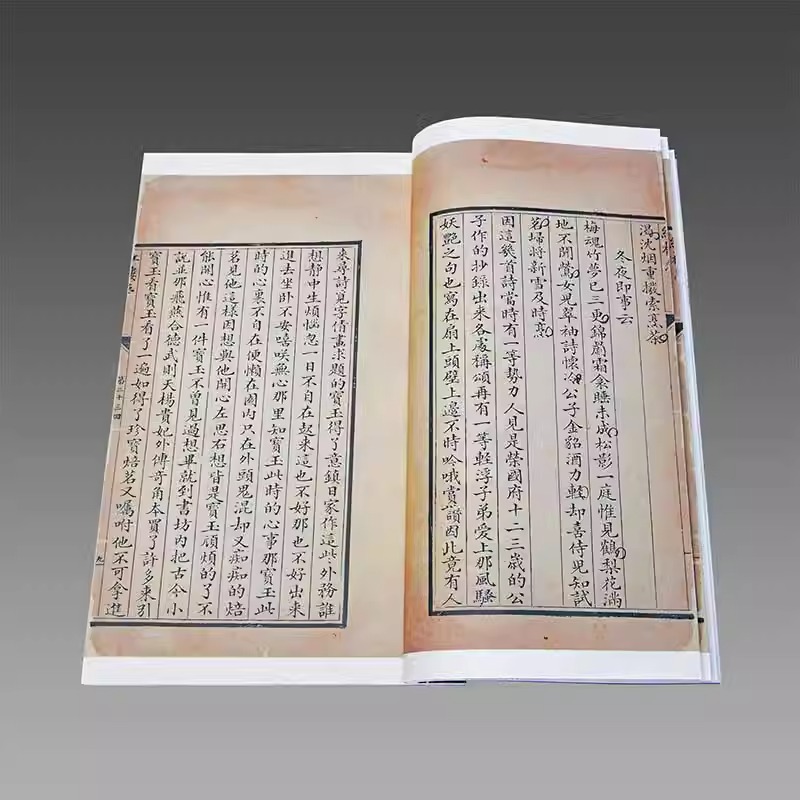 渴沈烟重撥索烹茶
冬夜即事云
梅魂竹夢已三更錦罽霜衾睡未成松影一庭惟見鶴梨花滿
地不聞鶯女兒翠袖詩懷冷公子金貂酒力輕却喜侍兒知試
茗埽將新雪及時烹
因這幾首詩當時有一等勢力人見是榮國府十二三歲的公
子作的抄錄出來各處稱頌再有一等輕浮子弟愛上那風騷
妖艷之句也寫在扇上頭壁上邊不時吟哦賞讚因此竟有人
來尋詩覓字倩畫求題的寶玉得了意鎮日家作這些外務誰
想靜中生煩惱忽一日不自在起來這也不好那也不好出來
進去坐卧不安嘻咲無心那里知寶玉此時的心事那寶玉此
時的心裏不自在便懶在園内只在外頭鬼混却又痴痴的焙
茗見他這樣因想與他開心左思右想皆是寶玉頑煩的了不
能開心惟有一件寶玉不曾見過想畢就到書坊内把古今小
説並那飛燕合德武則天楊貴妃外傳竒角本買了許多來引
寶玉看寶玉看了一遍如得了珍寶焙茗又囑咐他不可拿進
第二十三回